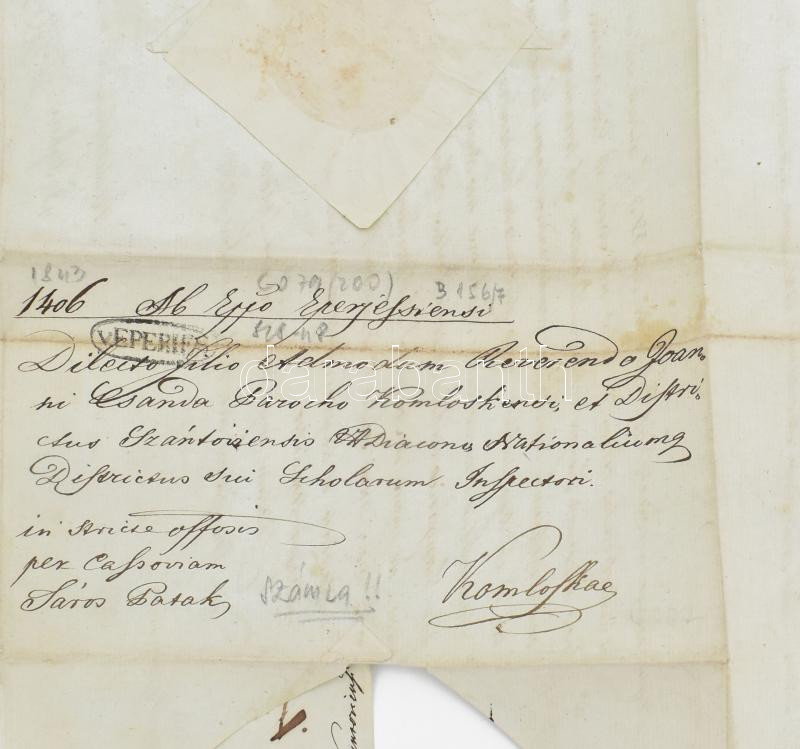 1843 60 79 (200) B 156/7
1406 Ab Eppo Eperjessiensi
v. EPERIES
Dilecto Filio Admodum Reverendo Joan-
ni Csanda Parocho Komloskensi, et Distri-
darabanth
ctus Szántoiensis VADiacono, Nationaliumq
Districtus sui Scholarum Inspectori.
in stricte offosis
per Cassoviam
Sáros Patak
Számla!!
Komloskae